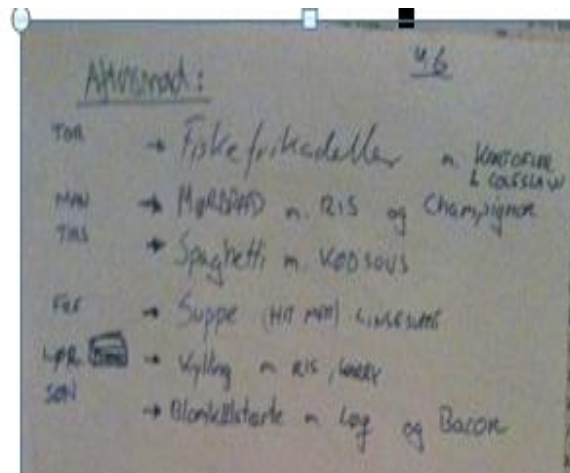 Aftensmad:
46
TOR → Fiskefrikadeller m. KARTOFLER
& COLESLAW
MAN → MØRBRAD m. RIS og Champignon
TIRS → Spaghetti m. KØDSOVS
FRE → Suppe (HIT MED) LINSESUPPE
LØR → Kylling m RIS, KARRY
SØN
→ m Løg og Bacon